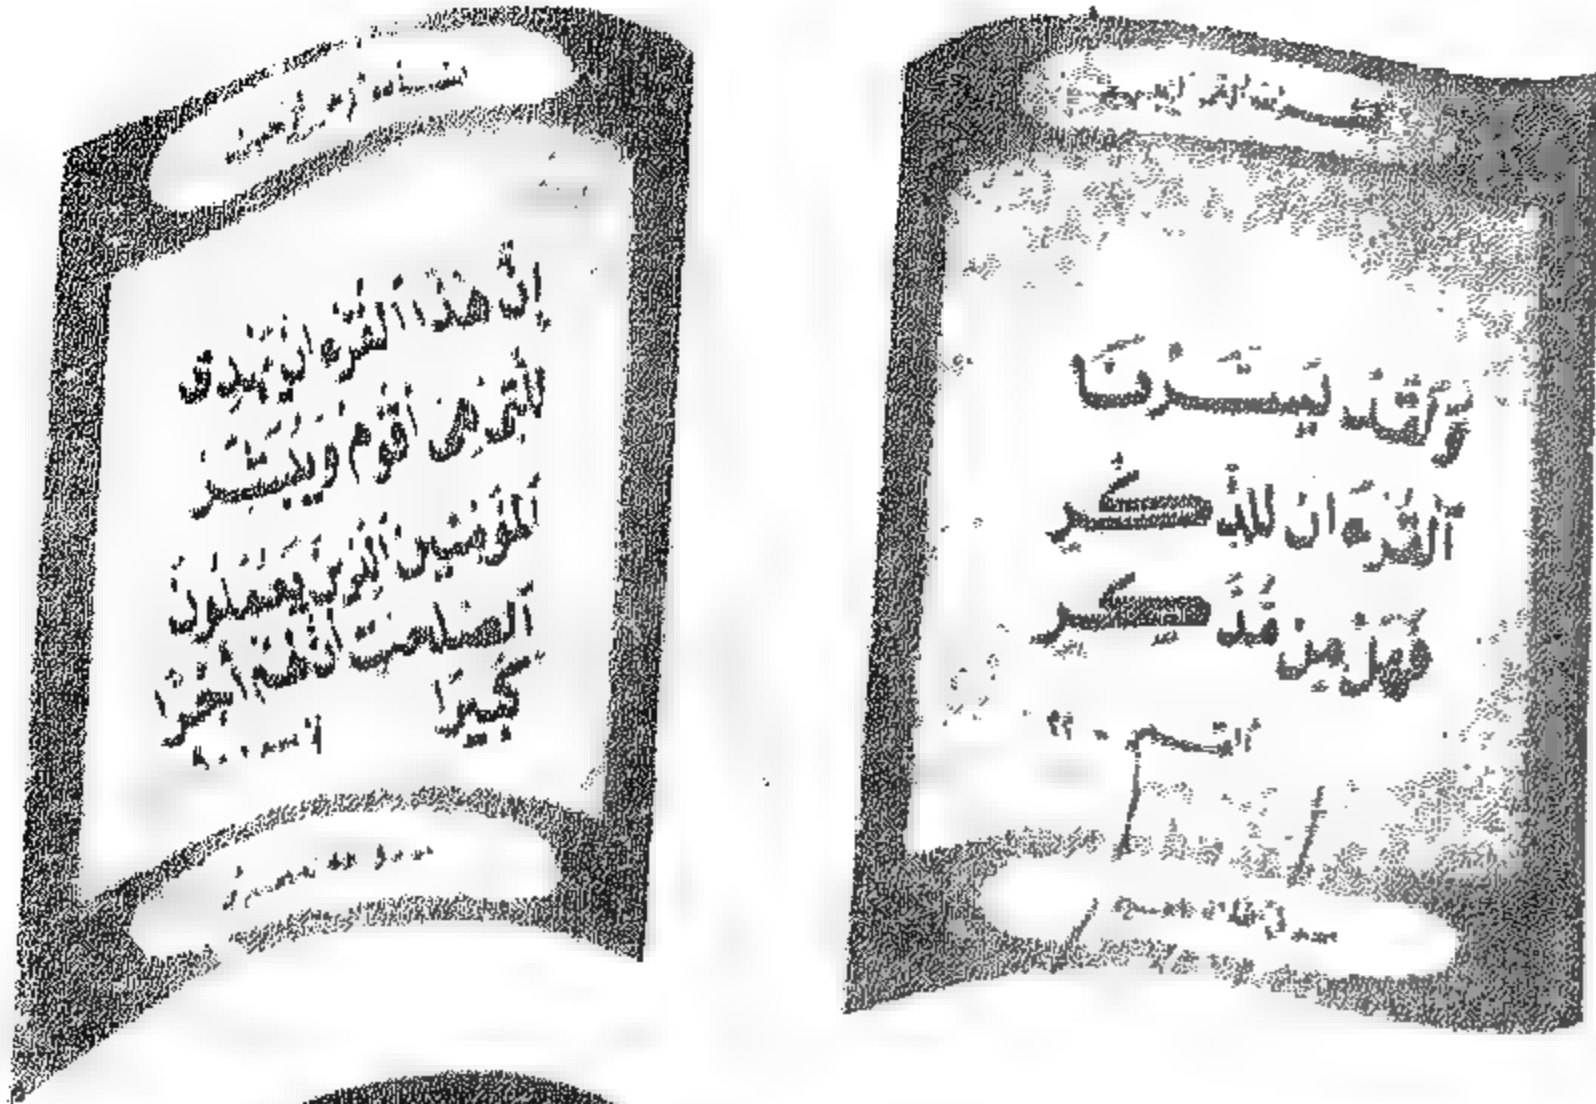 بسم الله الرحمن الرحيم
وَلَقَدْ يَسَّرْنَا
ٱلْقُرْءَانَ لِلذِّكْرِ
فَهَلْ مِن مُّدَّكِرٍ
القمر - ٢٢
صدق الله العظيم
بسم الله الرحمن الرحيم
إِنَّ هَٰذَا ٱلْقُرْءَانَ يَهْدِى
لِلَّتِى هِىَ أَقْوَمُ وَيُبَشِّرُ
ٱلْمُؤْمِنِينَ ٱلَّذِينَ يَعْمَلُونَ
ٱلصَّٰلِحَٰتِ أَنَّ لَهُمْ أَجْرًا
كَبِيرًا
صدق الله العظيم